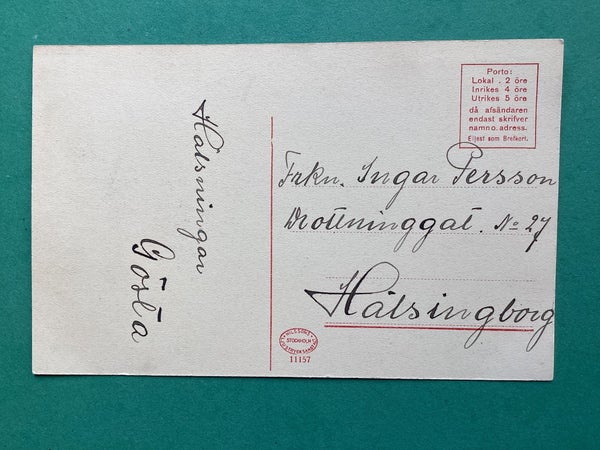 Hälsningar
Gösta
Porto:
Lokal . 2 öre
Inrikes 4 öre
Utrikes 5 öre
då afsändaren
endast skrifver
namn o. adress.
Eljest som Brefkort.
Frkn. Ingar Persson
Drottninggat. No 27
Hälsingborg
STOCKHOLM
11157